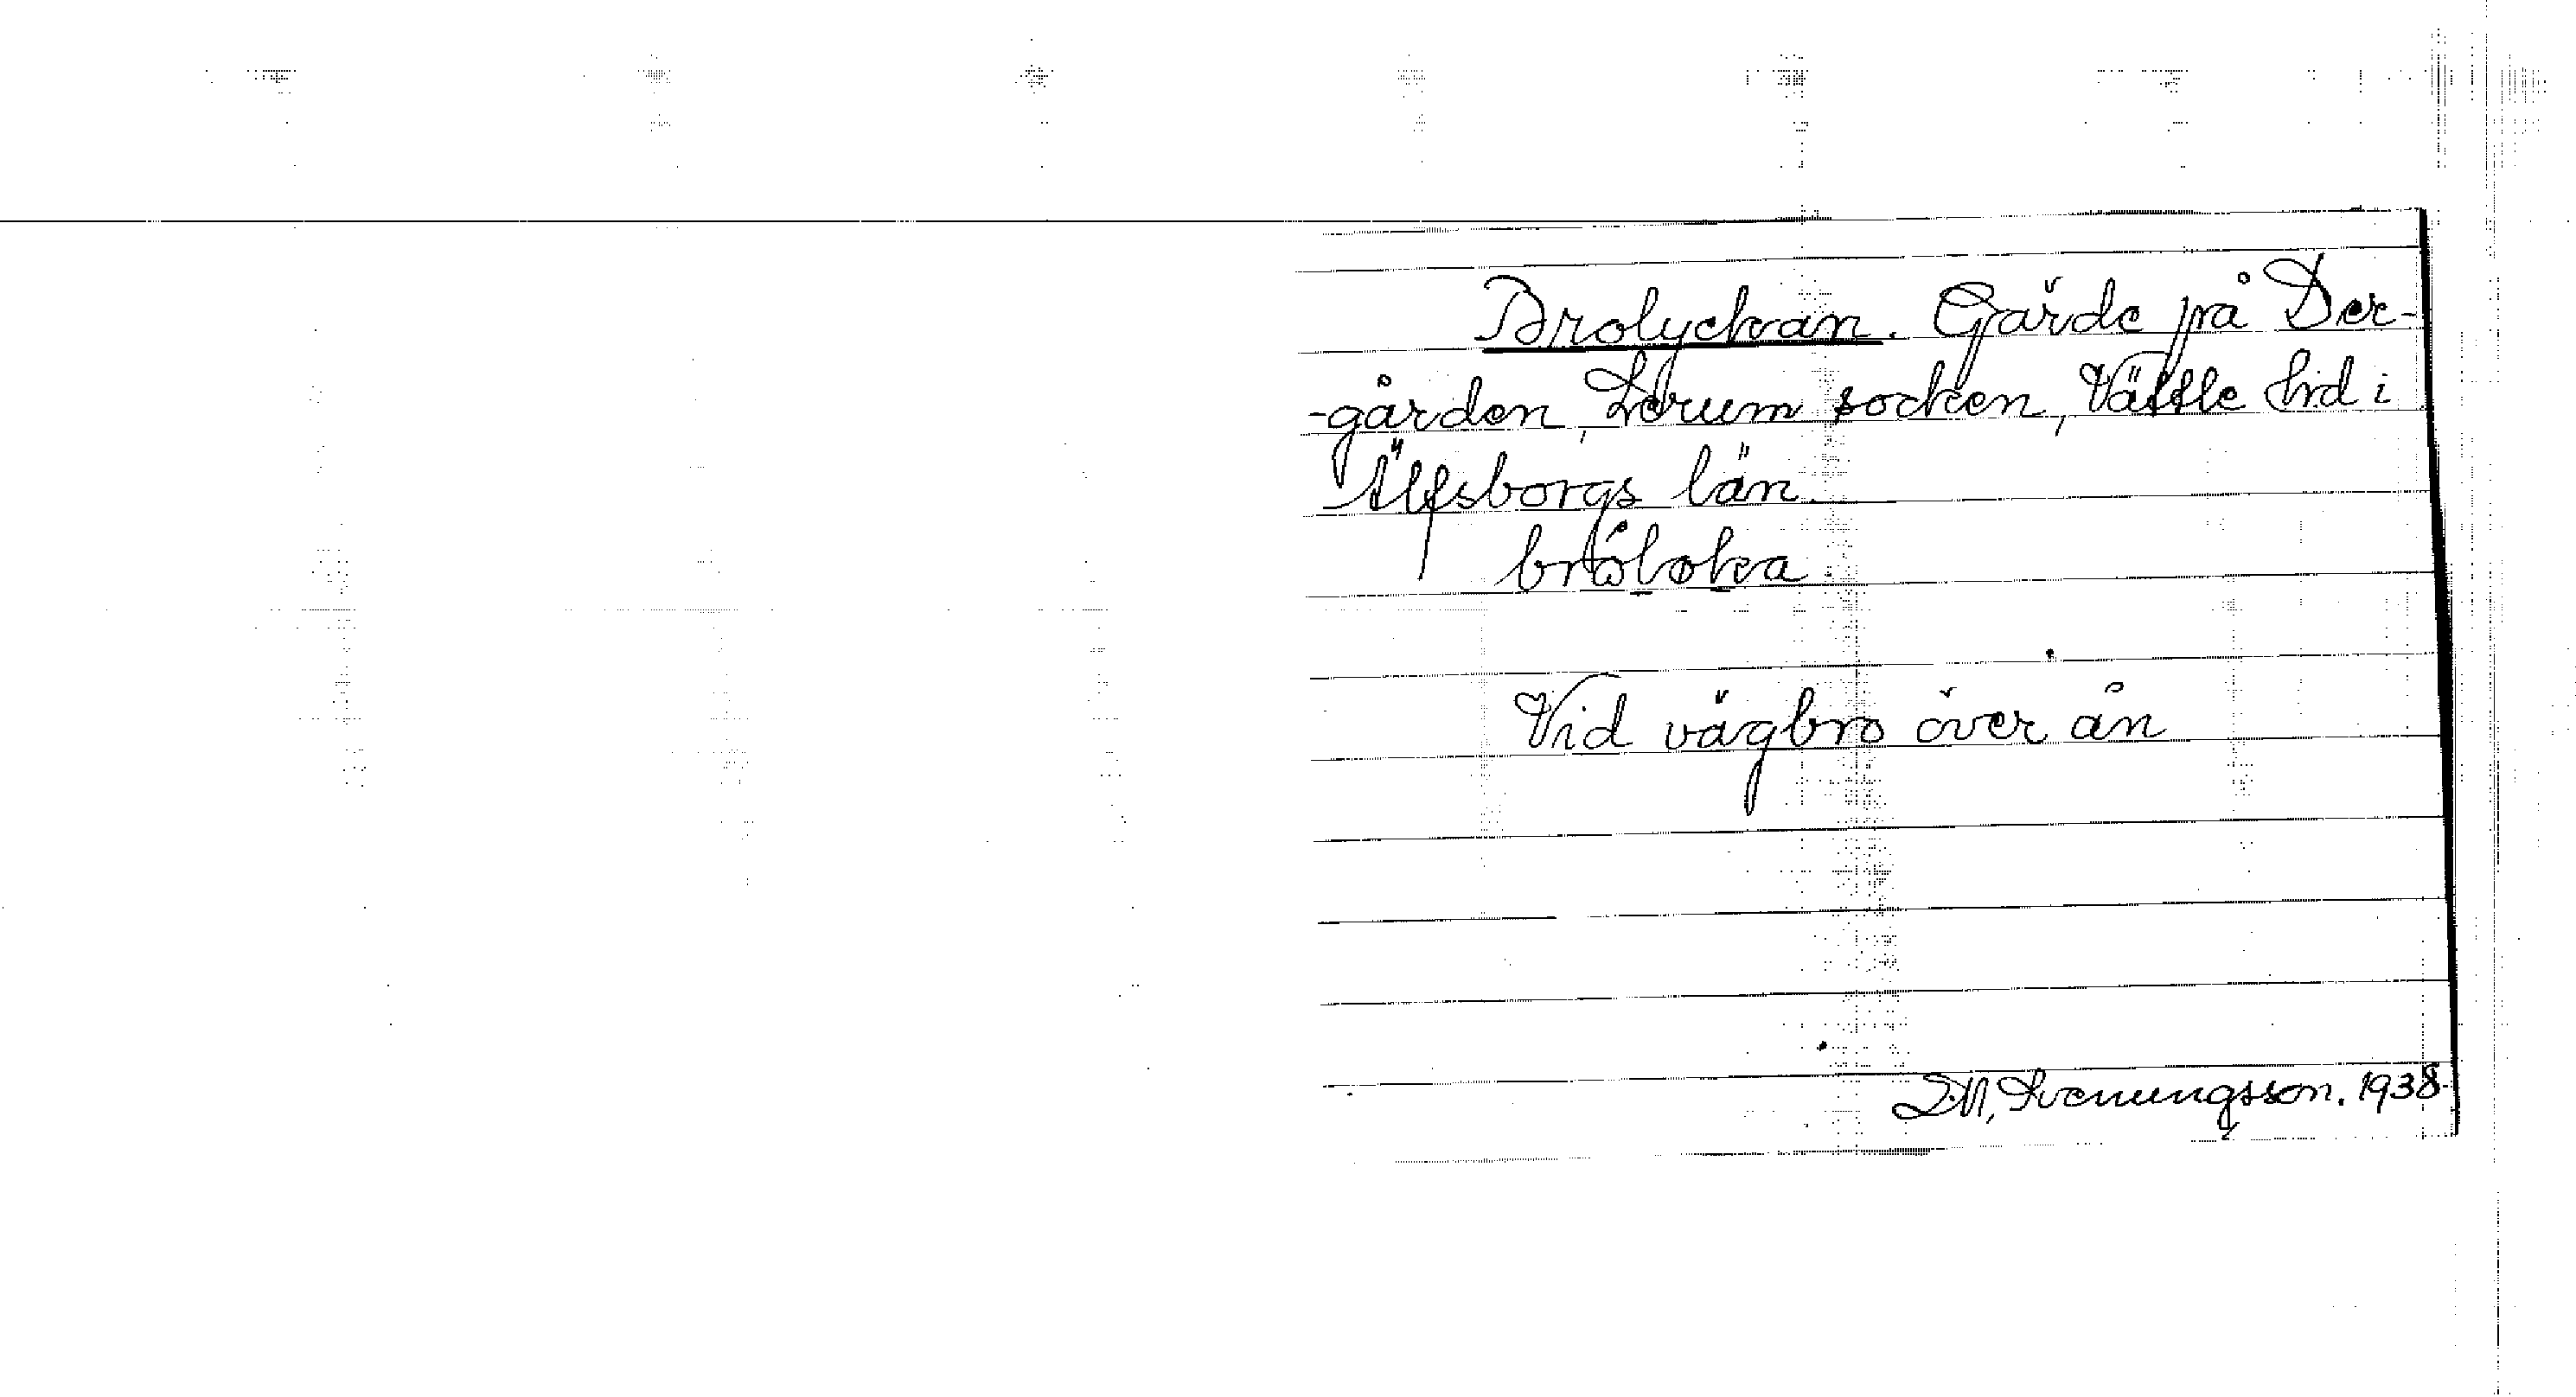 Brolyckan. Gärde på Der-
-gården, Lerum socken, Vättle hd i
Älfsborgs län.
bróløka
Vid vägbro över ån
D.M, Svenungsson. 1938